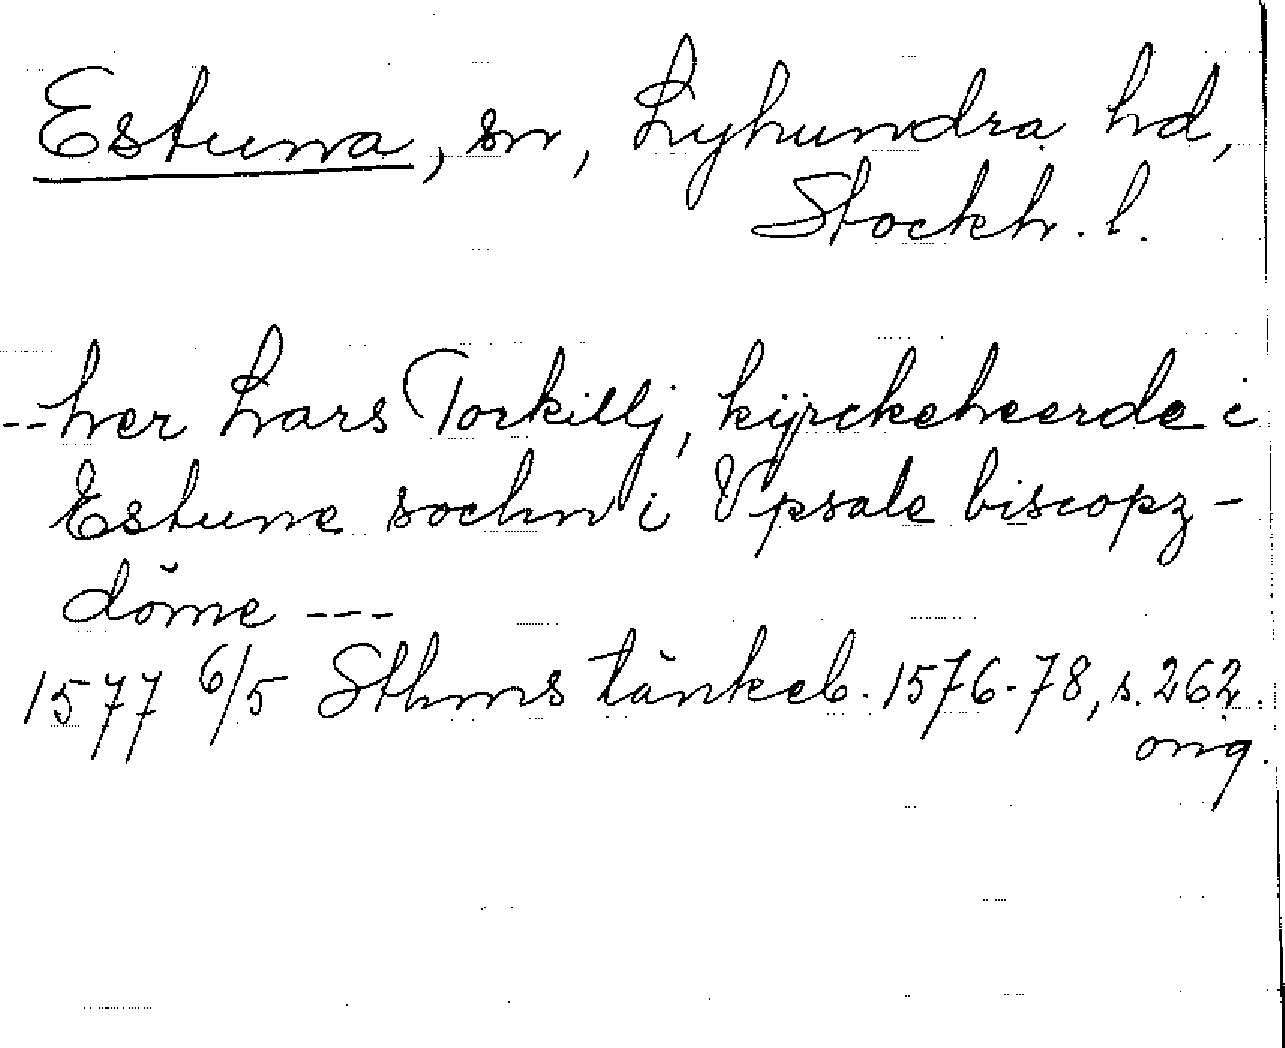 Estuna, sn, Lyhundra hd,
Stockh. l.
--her Lars Torkillj, kijrckeheerde i
Estune sochn i Vpsale biscopz-
döme ---
1577 6/5 Sthms tänkeb. 1576-78, s. 262.
orig.